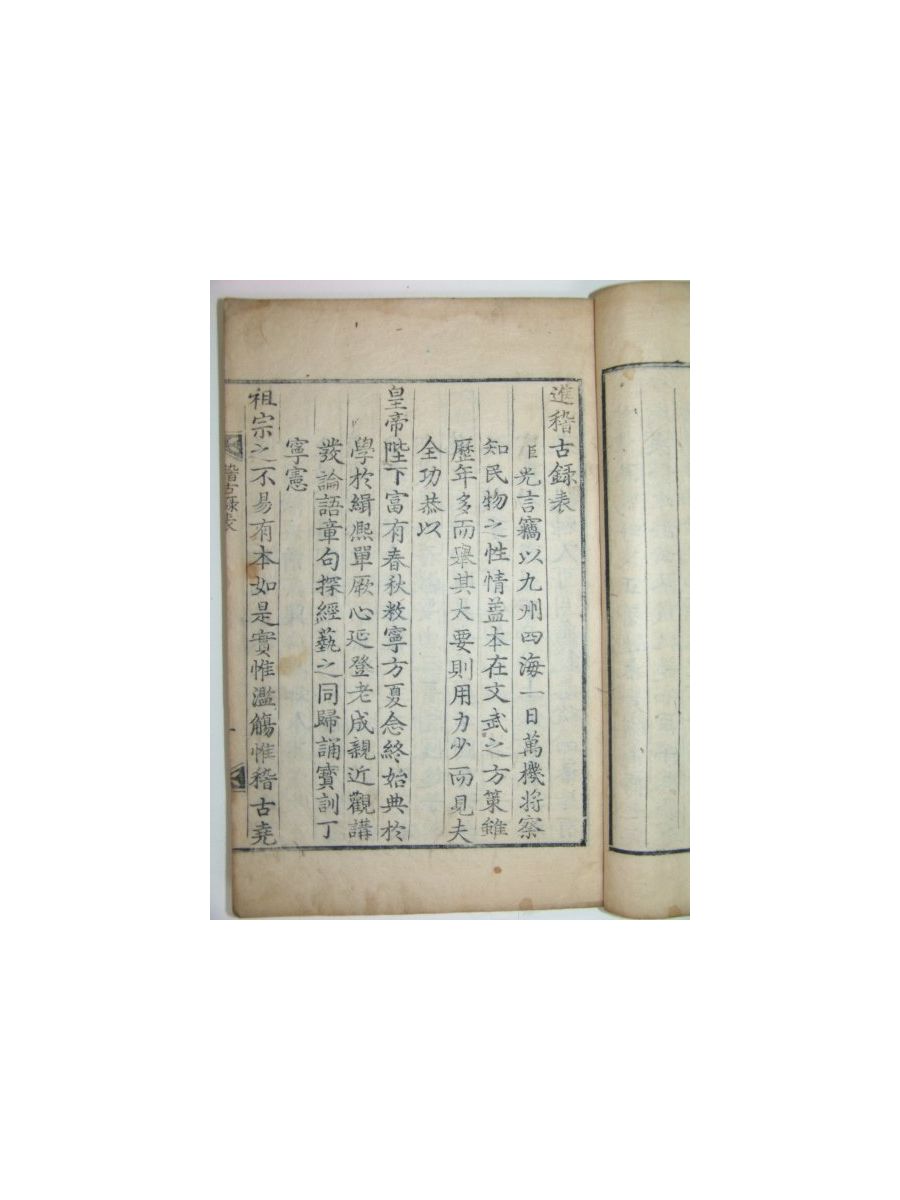 進稽古録表
臣光言竊以九州四海一日萬機将察
知民物之性情盖本在文武之方策雖
歷年多而舉其大要則用力少而見夫
全功恭以
皇帝陛下富有春秋敉寧方夏念終始典於
學於緝熈單厥心延登老成親近觀講
發論語章句探經藝之同歸誦寳訓丁
寧憲
祖宗之不易有本如是實惟濫觴惟稽古堯
稽古録表